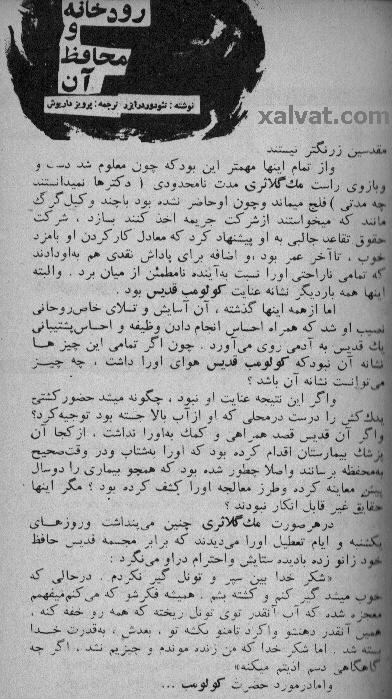 رودخانه
و
محافظ
آن
نوشته : تئودور درایزر ترجمه : پرویز داریوش
xalvat.com
مقدسین زرنگتر نیستند .
واز تمام اینها مهمتر این بود که چون معلوم شد دست و
وبازوی راست مك گلاثری مدت نامحدودی ( دکترها نمیدانستند
چه مدتی ) فلج میماند وچون اوحاضر نشده بود باچند وکیل گرگ
مانند که میخواستند ازشرکت جریمه اخذ کنند بسازد ، شرکت
حقوق تقاعد جالبی به او پیشنهاد کرد که معادل کار کردن او بامزد
خوب ، تاآخر عمر بود ،و اضافه برای پاداش نقدی هم به او دادند
که تمامی ناراحتی اورا نسبت به آینده نامطمئن از میان برد . والبته
اینها همه باردیگر نشانه عنایت کولومب قدیس بود .
اما ازهمه اینها گذشته ، آن آسایش و تسلای خاص روحانی
نصیب او شد که همراه احساس انجام دادن وظیفه و احساس پشتیبانی
یك قدیس به آدمی روی می‌آورد . چون اگر تمامی این چیز ها
نشانه آن نبود که کولومب قدیس هوای اورا داشت ، چه چیز
می‌توانست نشانه آن باشد ؟
واگر این نتیجه عنایت او نبود ، چگونه میشد حضور کشتی
یدك‌کش را درست درمحلی که او از آب بالا جسته بود توجیه کرد؟
واگر آن قدیس قصد همراهی و کمك به اورا نداشت ، از کجا آن
پزشك بیمارستان اقدام کرده بود که اورا به شتاب ودر وقت صحیح
به محفظه برسانند واصلا چطور شده بود که همچو بیماری را دوسال
پیش معاینه کرده وطرز معالجه اورا کشف کرده بود ؟ مگر اینها
حقایق غیر قابل انکار نبودند ؟
درهرصورت مك گلاثری چنین می‌پنداشت وروزهای
یکشنبه و ایام تعطیل اورا می‌دیدند که برابر مجسمه قدیس حافظ
خود زانو زده بادیده ستایش واحترام دراو می‌نگرد :
«شکر خدا بین سپر و تونل گیر نکردم . درحالی که
خوب میشد گیر کنم و کشته بشم . همیشه فکرشو که می‌کنم میفهمم
معجزه شده که آب آنقدر توی تونل ریخته که همه رو خفه کنه ،
همین آنقدر دهنشو واکرد تامنو بکشه تو ، بعدش ، به‌قدرت خدا
بسته شد . اما شکر خدا که من زنده موندم و چیزیم نشد ، اگر چه
گاهگاهی دسم اذیتم میکنه»
وامادرمورد حضرت کولومب ...